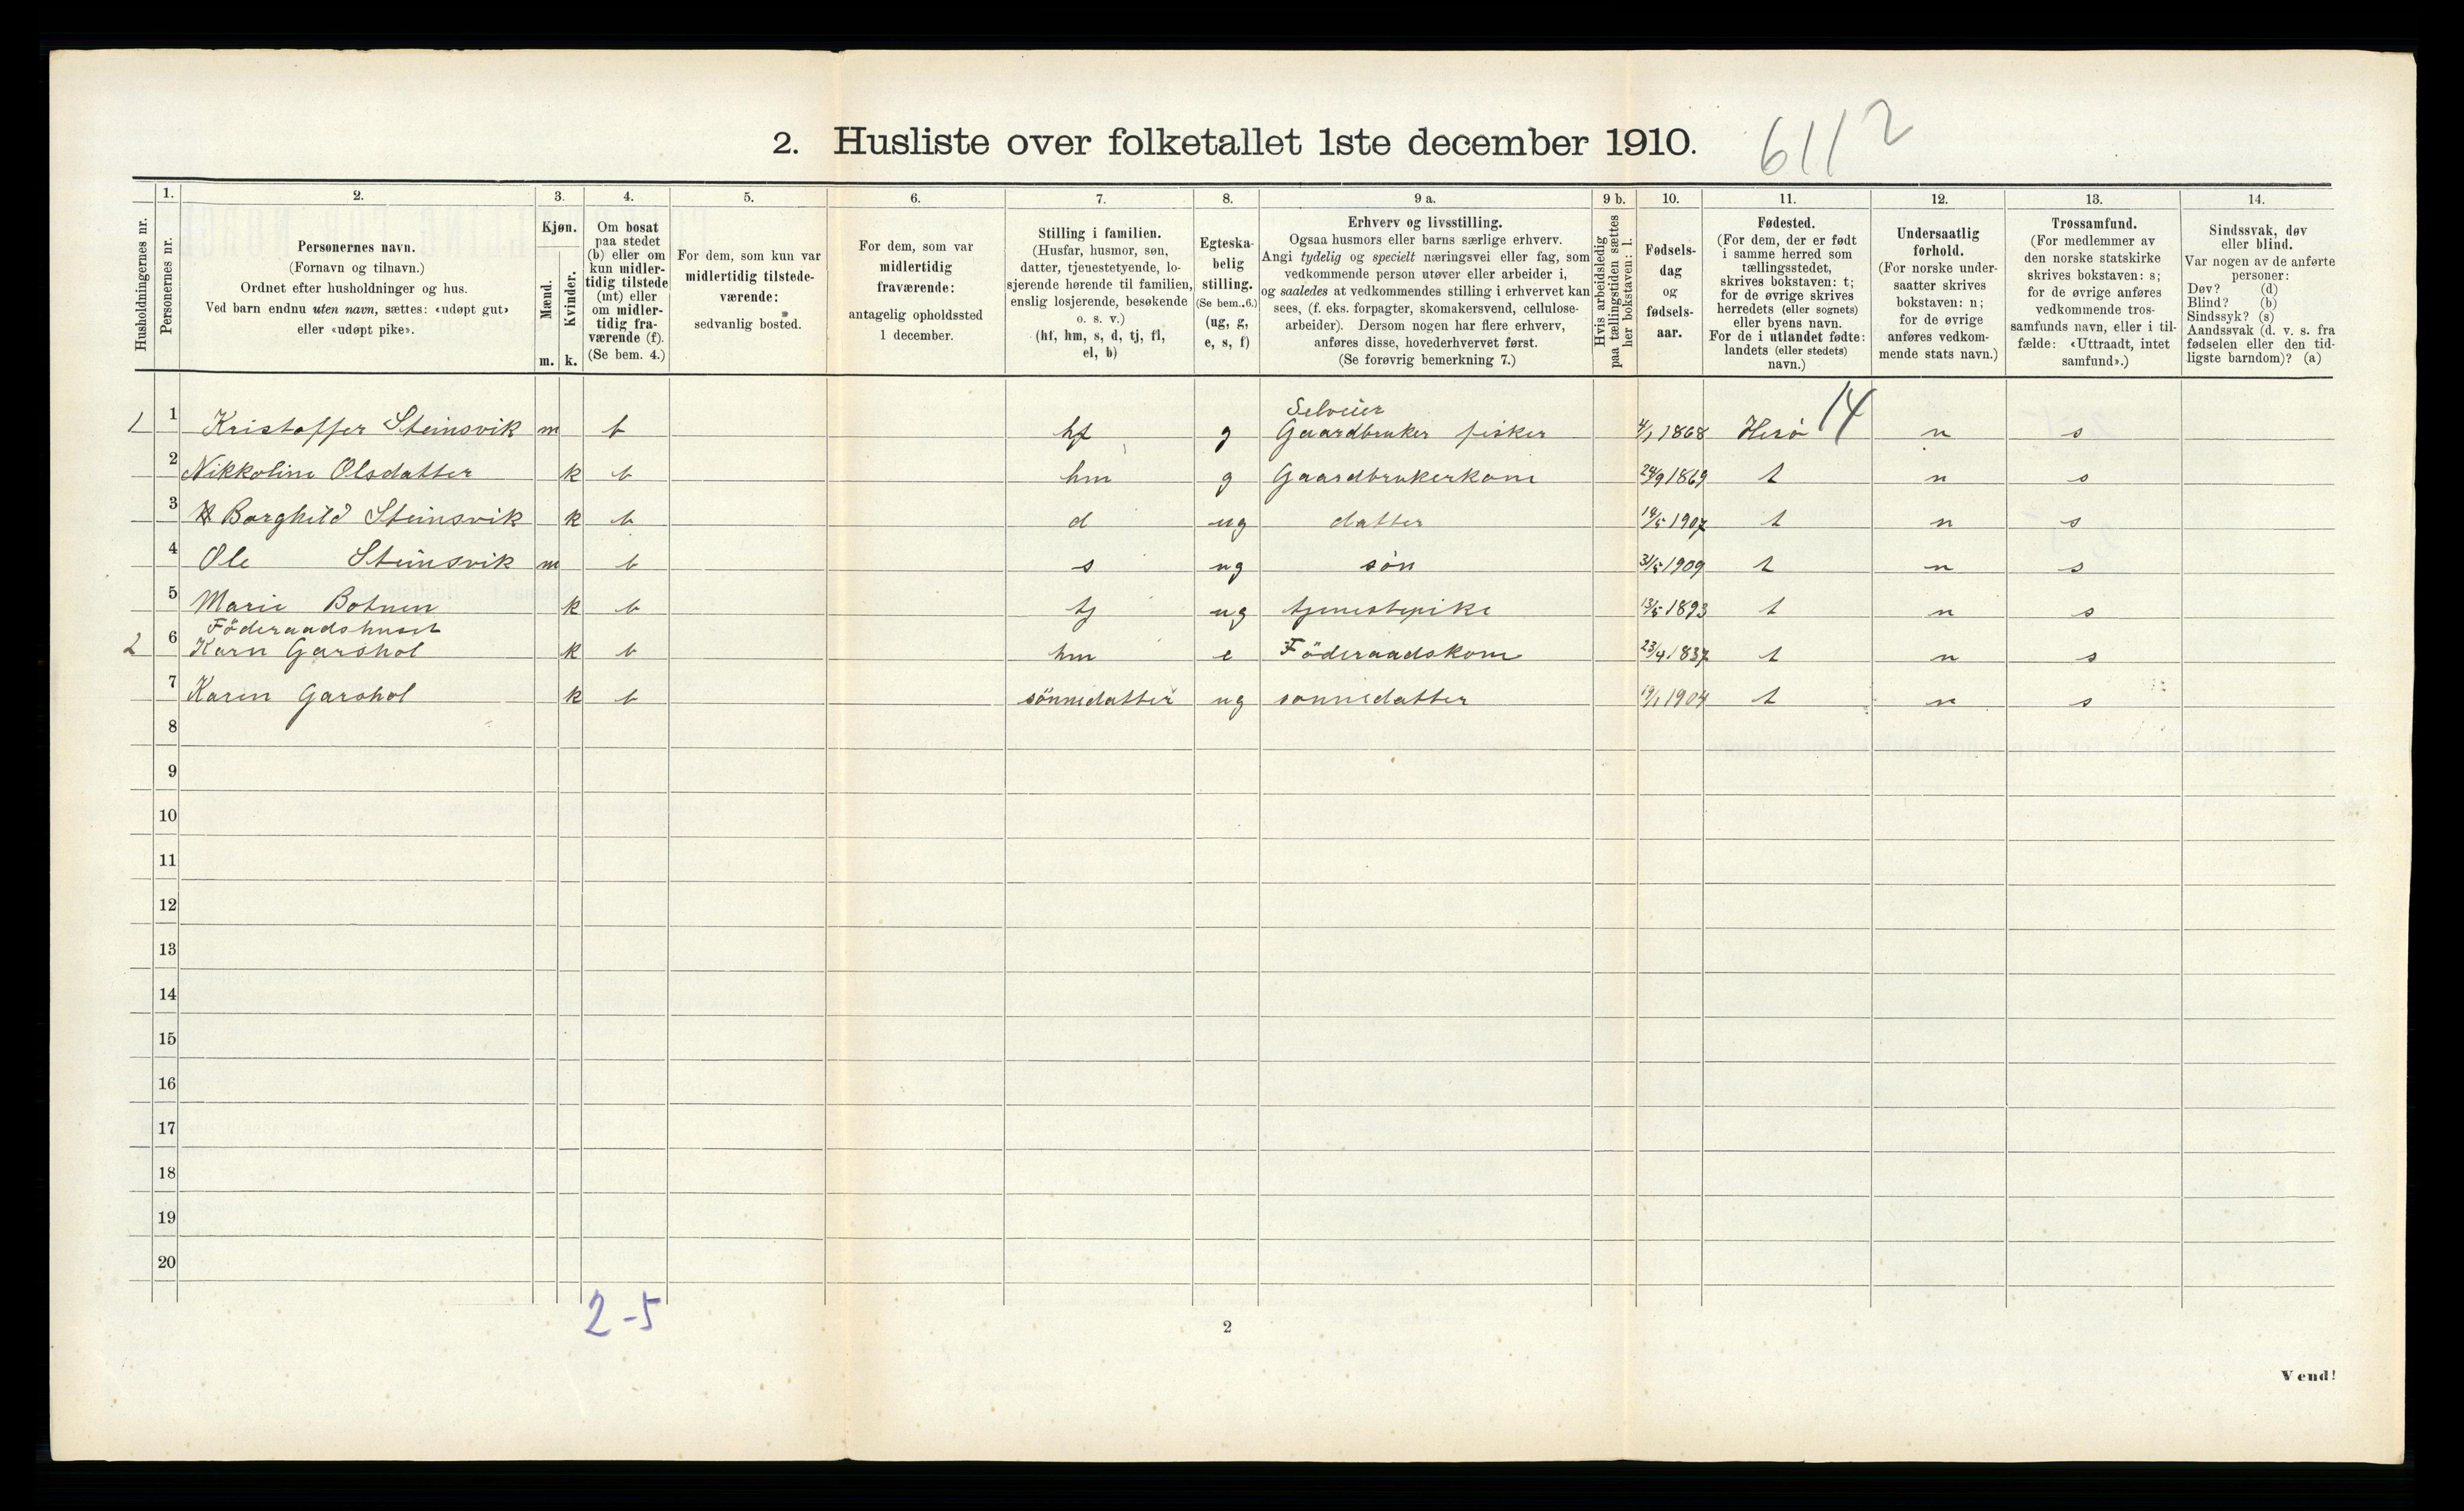 2. Husliste over folketallet 1ste december 1910.
6112
Husholdningernes nr.
1.
Personernes nr.
2.
Personernes navn.
(Fornavn og tilnavn.)
Ordnet efter husholdninger og hus.
Ved barn endnu uten navn, sættes: «udøpt gut»
eller «udøpt pike».
3.
Kjøn.
Mænd.
Kvinder.
m. k.
4.
Om bosat
paa stedet
(b) eller om
kun midler-
tidig tilstede
(mt) eller
om midler-
tidig fra-
værende (f).
(Se bem. 4.)
5.
For dem, som kun var
midlertidig tilstede-
værende:
sedvanlig bosted.
6.
For dem, som var
midlertidig
fraværende:
antagelig opholdssted
1 december.
7.
Stilling i familien.
(Husfar, husmor, søn,
datter, tjenestetyende, lo-
sjerende hørende til familien,
enslig losjerende, besøkende
o. s. v.)
(hf, hm, s, d, tj, fl,
el, b)
8.
Egteska-
belig
stilling.
(Se bem. 6.)
(ug, g,
e, s, f)
9 a.
Erhverv og livsstilling.
Ogsaa husmors eller barns særlige erhverv.
Angi tydelig og specielt næringsvei eller fag, som
vedkommende person utøver eller arbeider i,
og saaledes at vedkommendes stilling i erhvervet kan
sees, (f. eks. forpagter, skomakersvend, cellulose-
arbeider). Dersom nogen har flere erhverv,
anføres disse, hovederhvervet først.
(Se forøvrig bemerkning 7.)
9 b.
Hvis arbeidsledig
paa tællingstiden sættes
her bokstaven: l.
10.
Fødsels-
dag
og
fødsels-
aar.
11.
Fødested.
(For dem, der er født
i samme herred som
tællingsstedet,
skrives bokstaven: t;
for de øvrige skrives
herredets (eller sognets)
eller byens navn.
For de i utlandet fødte:
landets (eller stedets)
navn.)
12.
Undersaatlig
forhold.
(For norske under-
saatter skrives
bokstaven: n;
for de øvrige
anføres vedkom-
mende stats navn.)
13.
Trossamfund.
(For medlemmer av
den norske statskirke
skrives bokstaven: s;
for de øvrige anføres
vedkommende tros-
samfunds navn, eller i til-
fælde: «Uttraadt, intet
samfund».)
14.
Sindssvak, døv
eller blind.
Var nogen av de anførte
personer:
Døv? (d)
Blind? (b)
Sindssyk? (s)
Aandssvak (d. v. s. fra
fødselen eller den tid-
ligste barndom)? (a)
Selveier 14
1 1 Kristoffer Steinsvik m b hf g Gaardbruker fisker 4/1 1868 Herö n s
2 Nikkoline Olsdatter k b hm g Gaardbrukerkone 24/9 1869 t n s
3 Borghild Steinsvik k b d ug datter 19/5 1907 t n s
4 Ole Steinsvik m b s ug sön 31/5 1909 t n s
5 Marie Botnen k b tj ug tjenestepike 13/5 1893 t n s
Föderaadshuset
2 6 Karn Garshol k b hm e Föderaadskone 23/4 1837 t n s
7 Karen Garshol k b sönnedatter ug sonnedatter 19/1 1904 t n s
8
9
10
11
12
13
14
15
16
17
18
19
20
2-5
2
Vend!